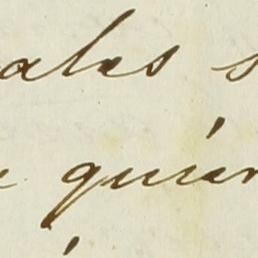 ales s
quier